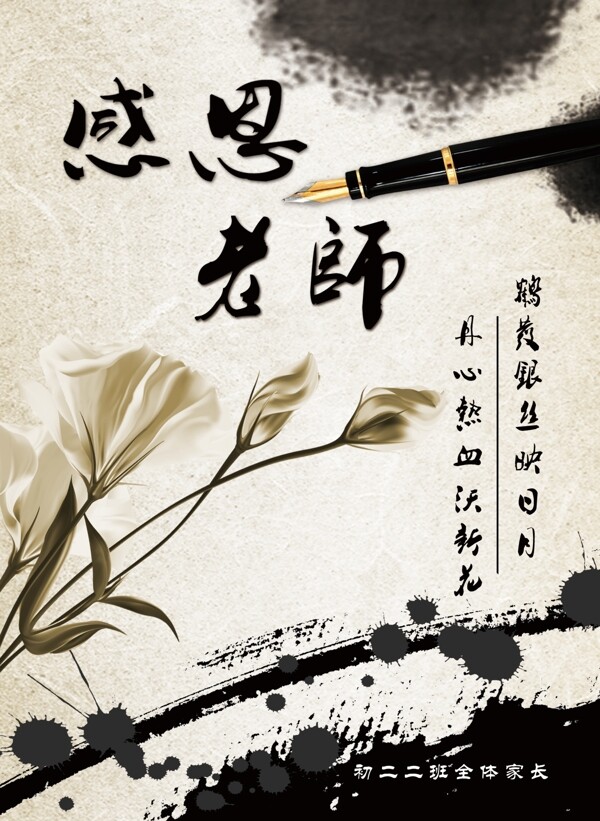 感恩
老師
鶴发银丝映日月
丹心热血沃新花
初二二班全体家长